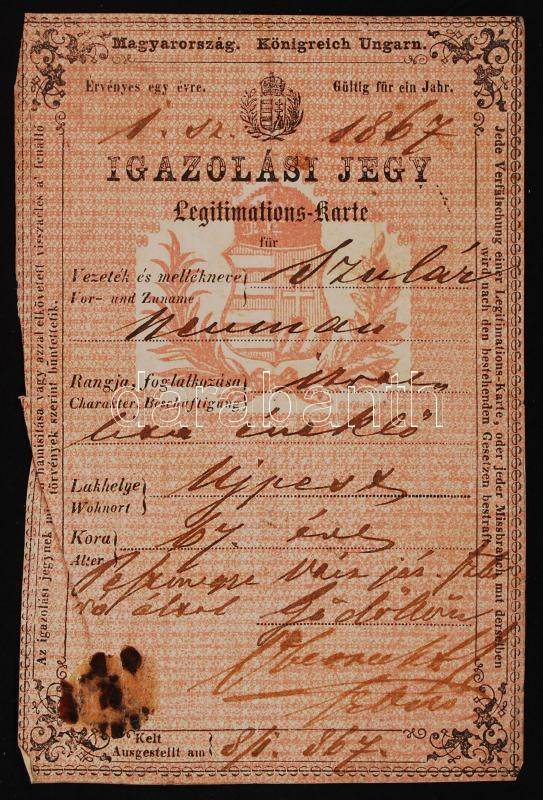 Magyarország. Königreich Ungarn.
Érvényes egy évre. Gültig für ein Jahr.
1. sz. 1867
IGAZOLÁSI JEGY
Legitimations-Karte
für
Vezeték és mellékneve
Vor- und Zuname
Szulár
Neuman
Rangja, foglalkozása
Charakter, Beschäftigung
éneklő
Lakhelye
Wohnort
Ujpest
Kora
Alter
67. éves
Pest megye Vácz jár.
által Gödöllőn
Kelt
Ausgestellt am
8/1. 867.
Az igazolási jegynek meghamisitása vagy azzal elkövetett visszaélés a' fenálló
törvények szerint büntettetik.
Jede Verfälschung einer Legitimations-Karte, oder jeder Missbrauch mit derselben
wird nach den bestehenden Gesetzen bestraft.
darabanth